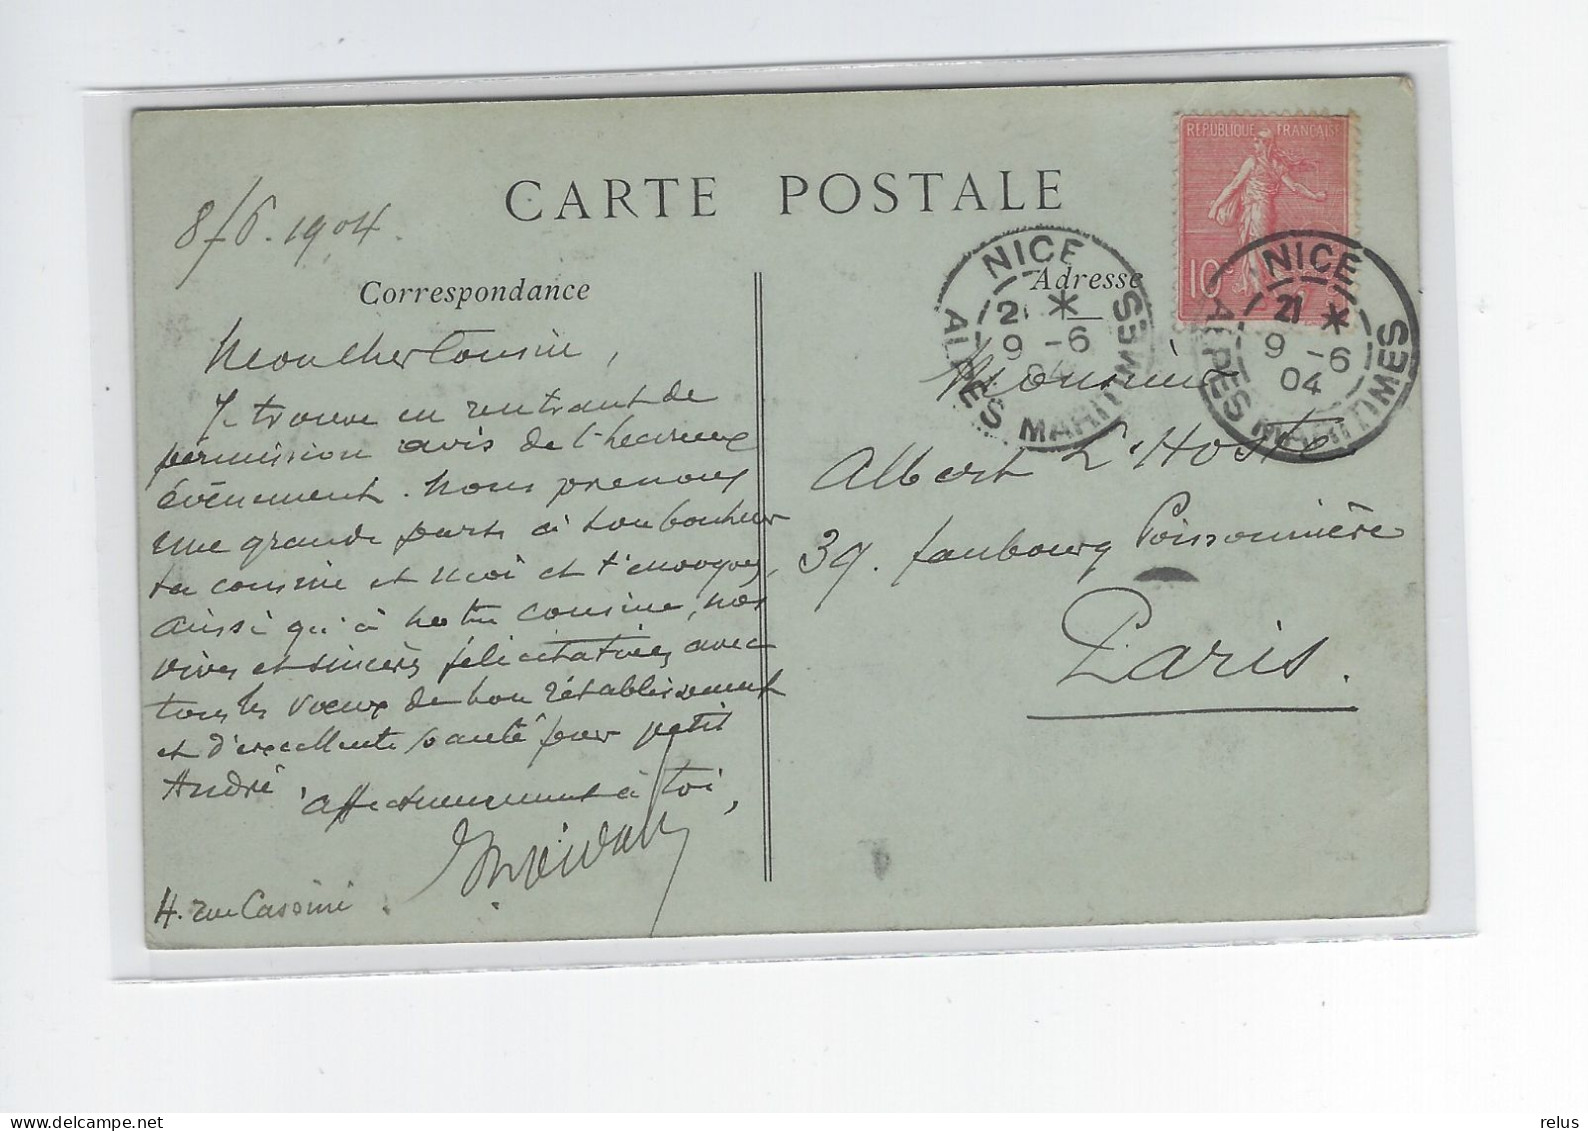 CARTE POSTALE
8/6.1904.
Correspondance
Adresse
REPUBLIQUE FRANÇAISE
10
NICE
21 *
9 - 6
04
ALPES MARITIMES
NICE
21 *
9 - 6
04
ALPES MARITIMES
Mon cher Cousin,
Je trouve en rentrant de
permission avis de l'heureux
évènement. Nous prenons
une grande part à ton bonheur
ta cousine et moi et t'envoyons,
ainsi qu'à notre cousine, nos
vives et sincères félicitations avec
tous les vœux de bon rétablissement
et d'excellente santé pour petit
André. Affectueusement à toi,
4. rue Cassini.
Monsieur
Albert L'Hoste
39. faubourg Poissonnière
Paris.
relus